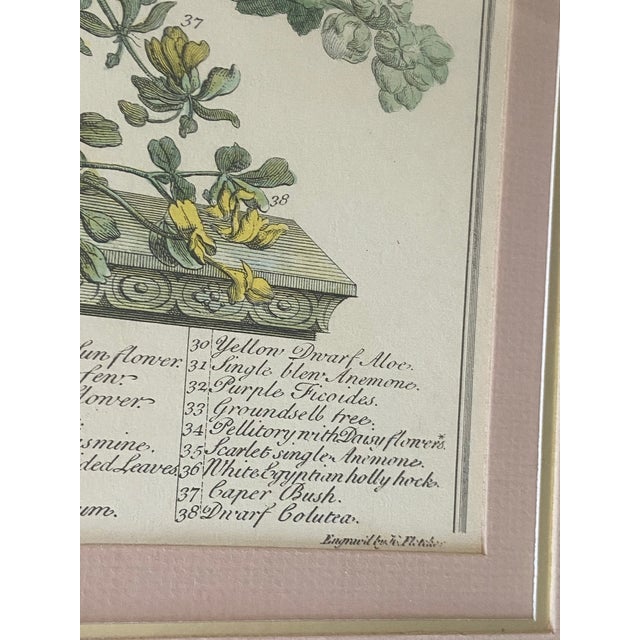 37
38
Sun flower.
flower.
smine.
ded Leaves.
um.
30 Yellow Dwarf Aloe.
31 Single blew Anemone.
32 Purple Ficoides.
33 Groundsell tree.
34 Pellitory with Daisy flowers.
35 Scarlet single Anemone.
36 White Egyptian holly hock.
37 Caper Bush.
38 Dwarf Colutea.
Engrav'd by H. Fletcher